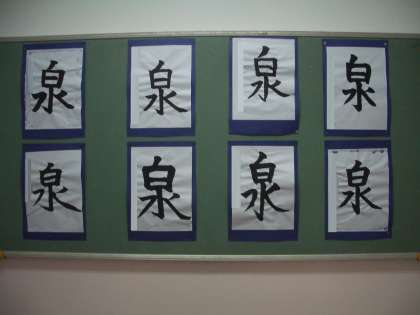 泉 泉 泉 泉
泉 泉 泉 泉